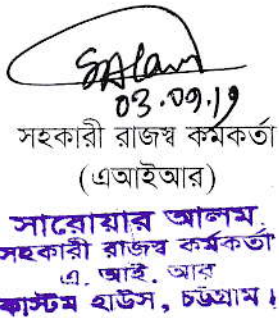 SAlam
03.09.19
সহকারী রাজস্ব কর্মকর্তা
(এআইআর)
সারোয়ার আলম
সহকারী রাজস্ব কর্মকর্তা
এ. আই. আর
কাস্টম হাউস, চট্টগ্রাম।